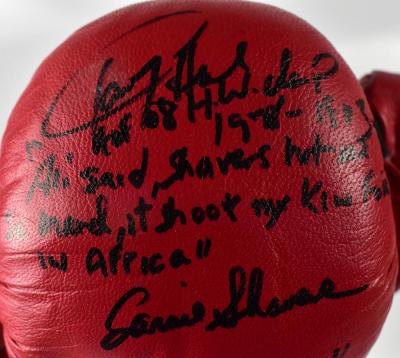 Larry
HOF 08 H.W. champ
1978-1983
"Ali said, shavers hit me
Hard, it shook my Kin Folk
in Africa"
Earnie Shavers